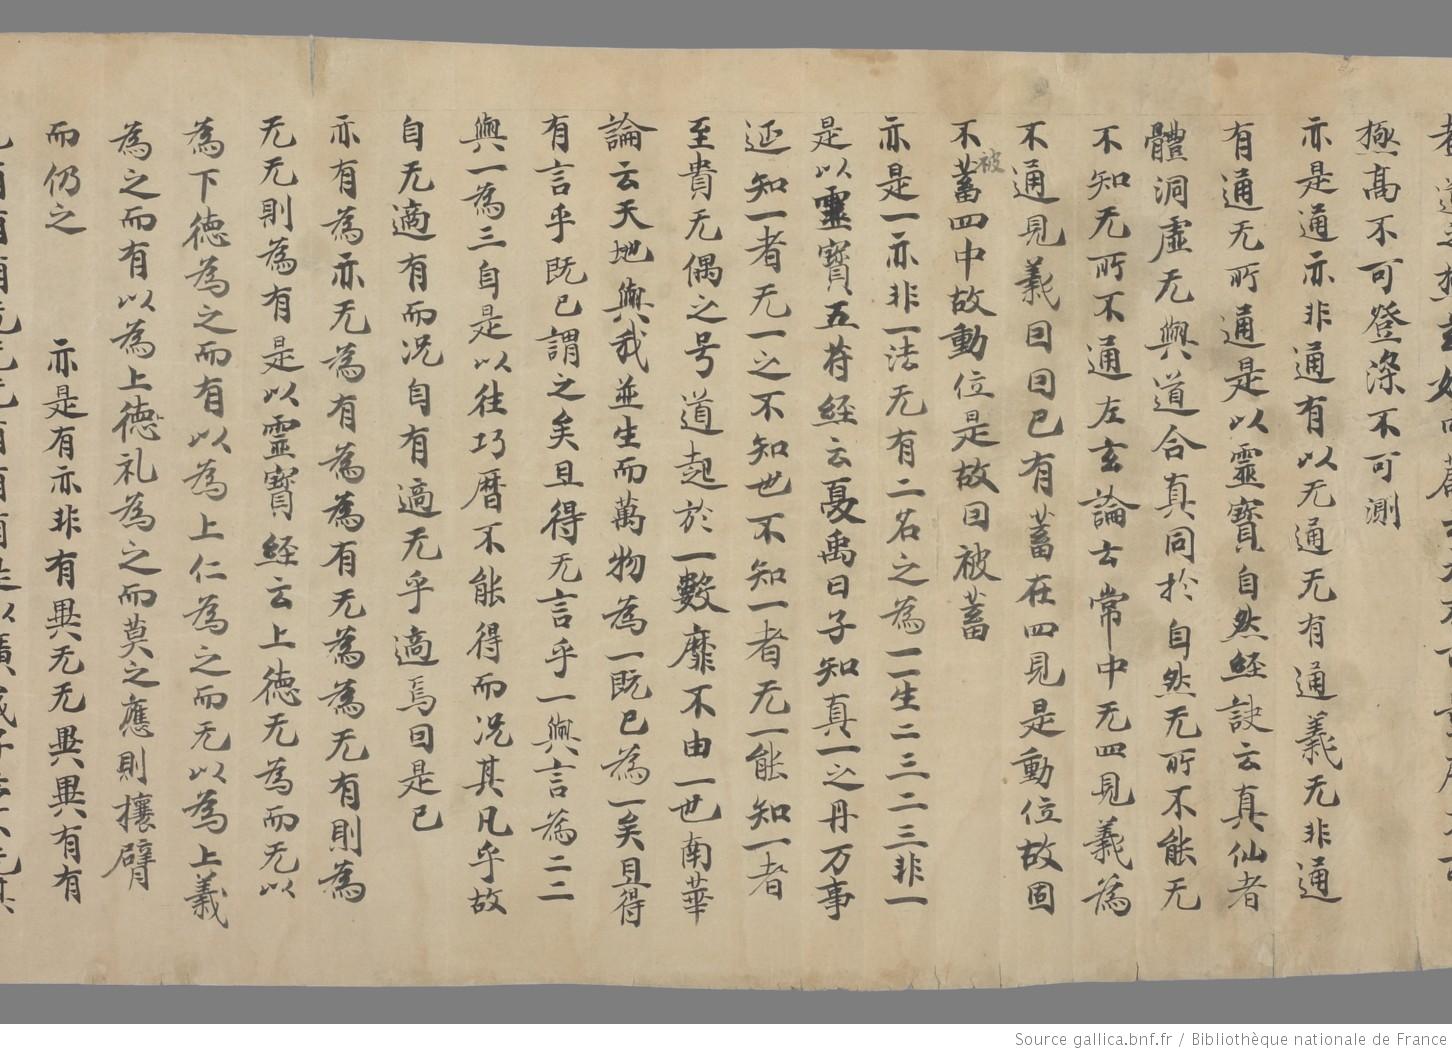 極高不可登深不可測
亦是通亦非通有以无通无有通義无非通
有通无所通是以靈寶自然經訣云真仙者
體洞虛无與道合真同於自然无所不能无
不知无所不通左玄論云常中无四見義為
不通見義曰曰已有蓄在四見是動位故固
不蓄四中故動位是故曰被蓄
被
亦是一亦非一法无有二名之為一一生二三二三非一
是以靈寶五符經云夏禹曰子知真一之丹万事
延知一者无一之不知世不知一者无一能知一者
至貴无偶之号道起於一數靡不由一也南華
論云天地與我並生而萬物為一既已為一矣且得
有言乎既已謂之矣且得无言乎一與言為二二
與一為三自是以往巧曆不能得而況其凡乎故
自无適有而況自有適无乎適焉曰是已
亦有為亦无為有為為有无為為无有則為
无无則為有是以靈寶經云上德无為而无以
為下德為之而有以為上仁為之而无以為上義
為之而有以為上德礼為之而莫之應則攘臂
而仍之 亦是有亦非有異无无異異有有